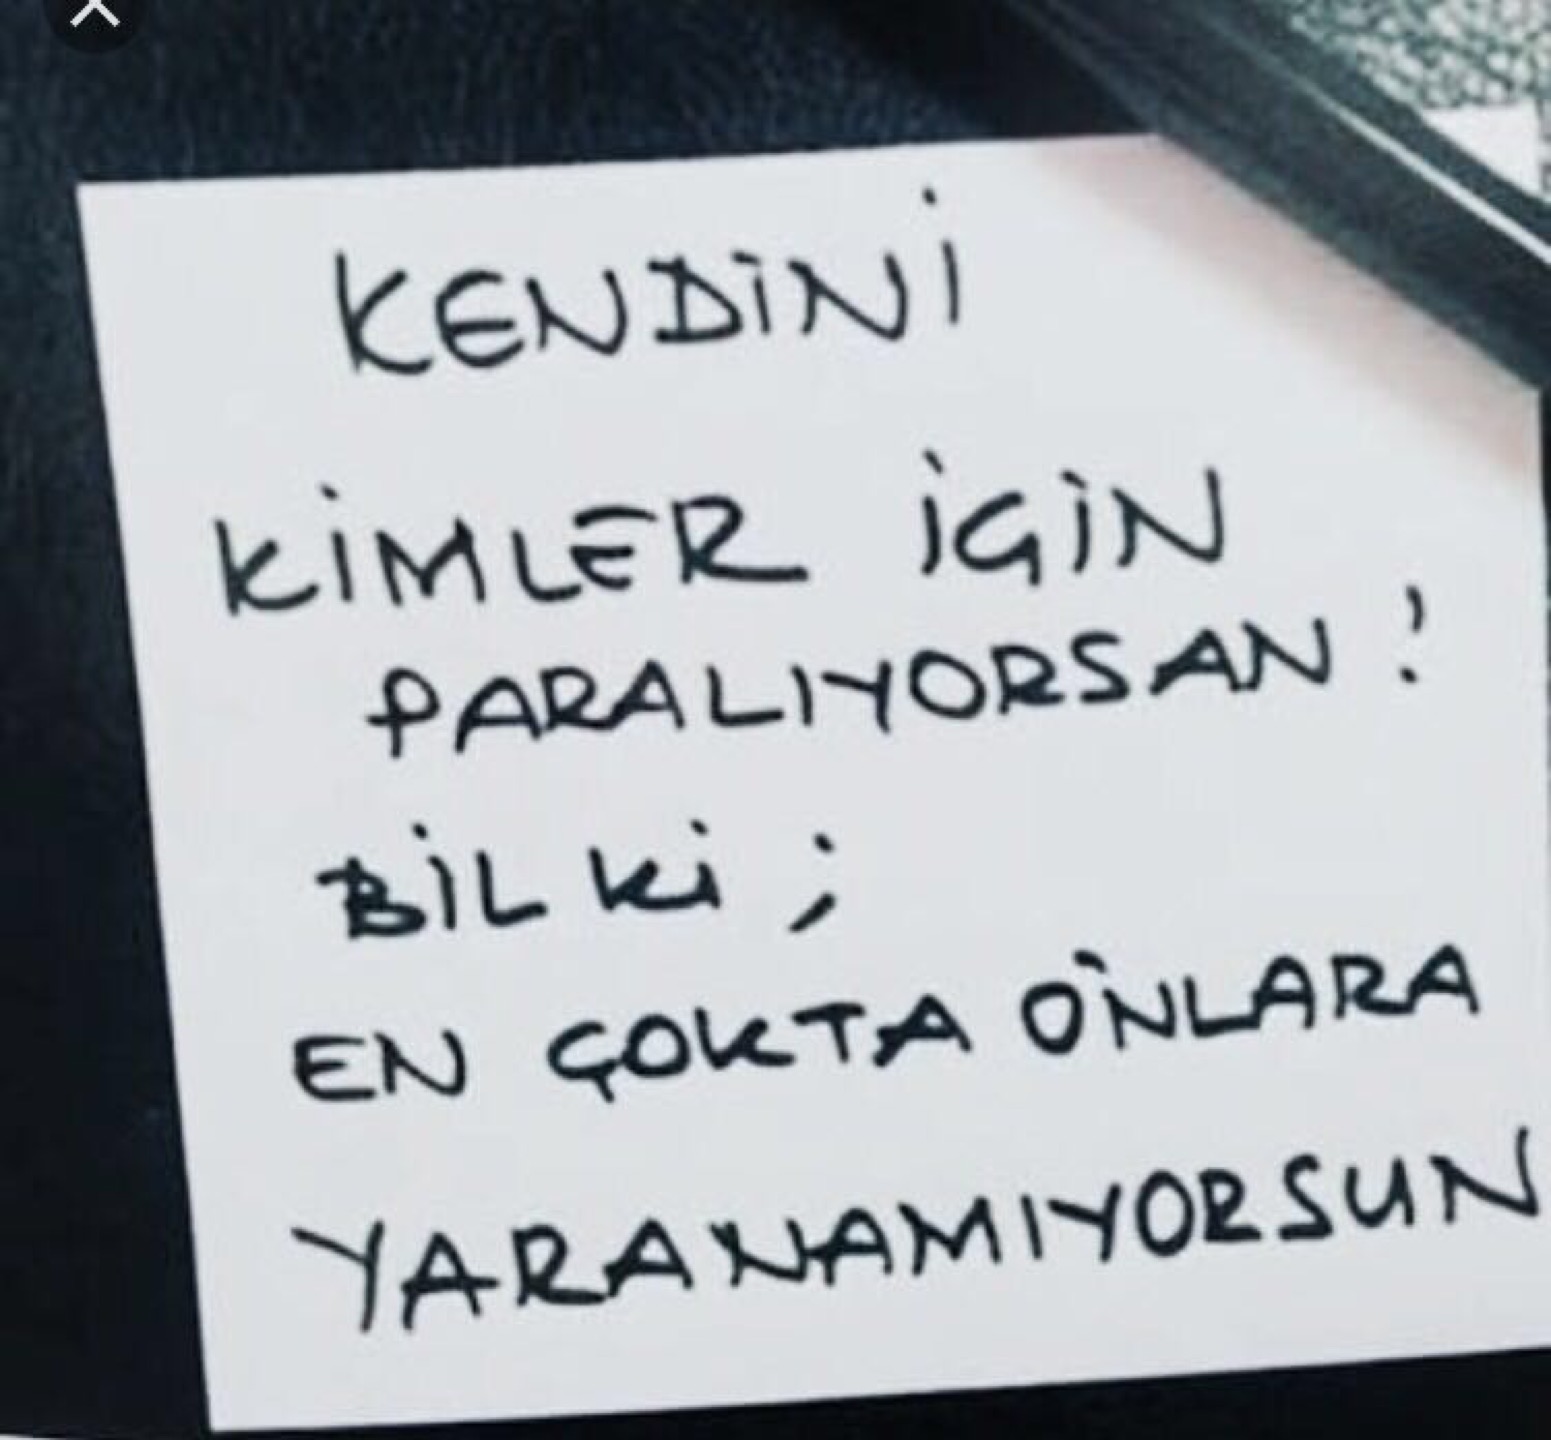 KENDİNİ
KİMLER İÇİN
PARALIYORSAN !
BİL Kİ ;
EN ÇOKTA ONLARA
YARANAMIYORSUN